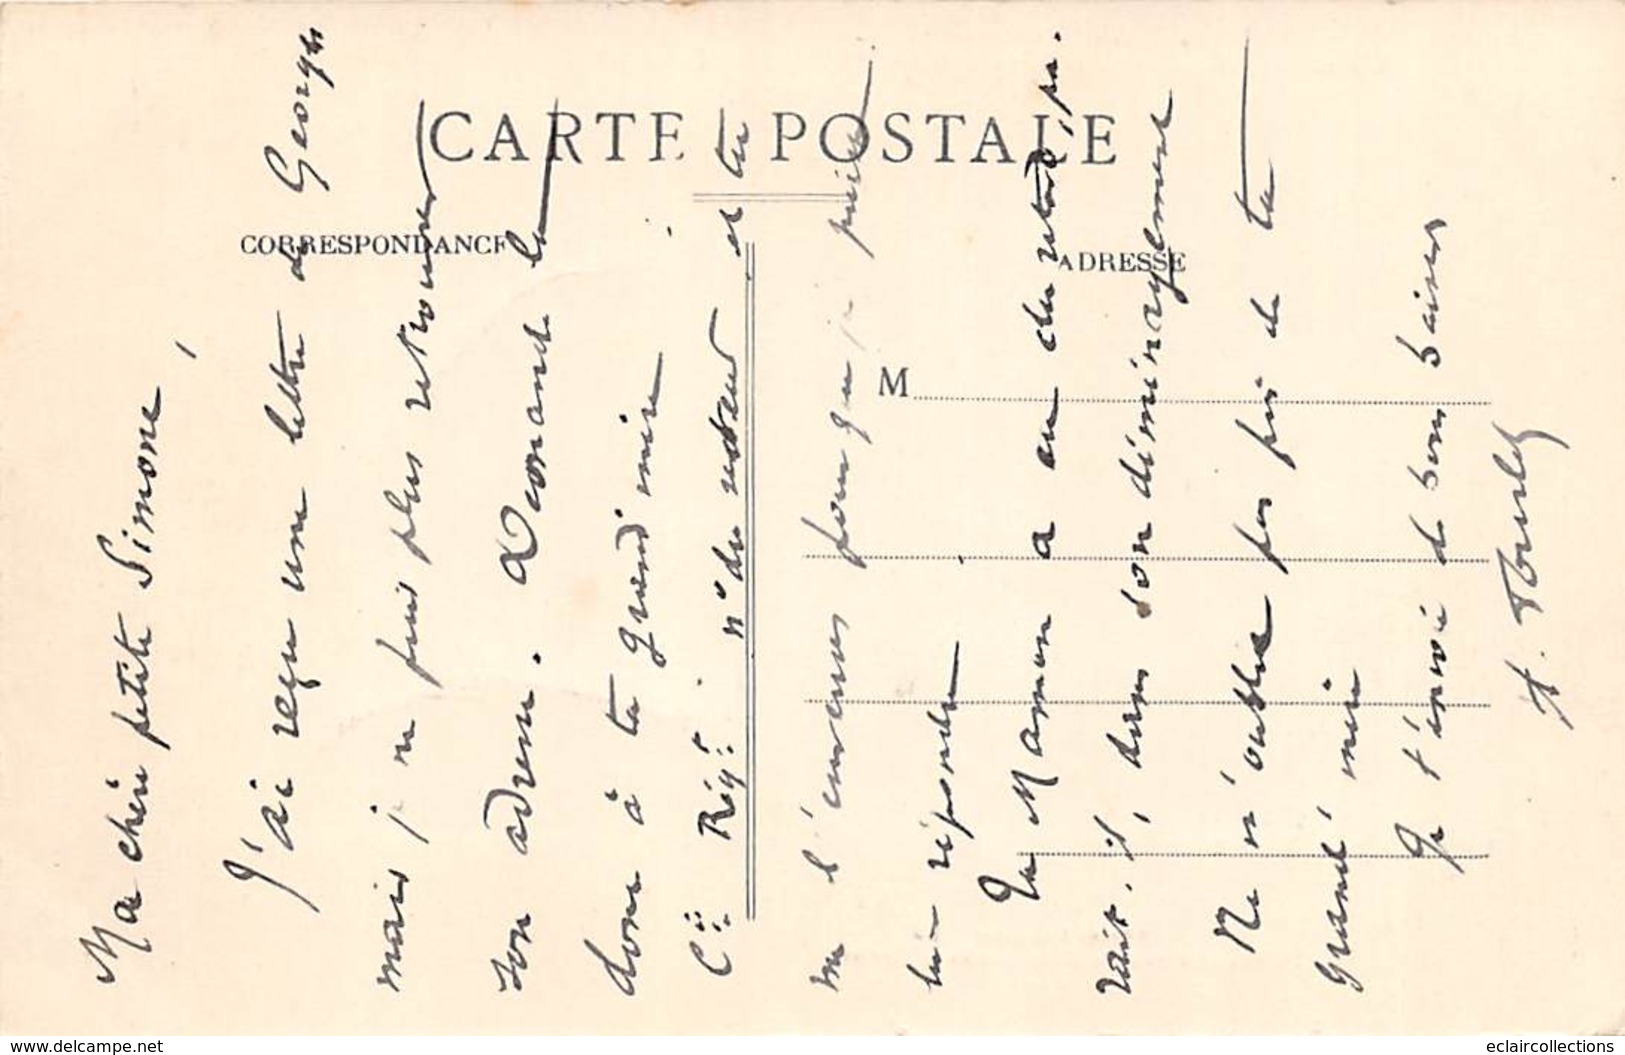 CARTE POSTALE
CORRESPONDANCE
ADRESSE
M
Ma chère petite Simone,
J'ai reçu une lettre de Georges
mais je ne puis plus retrouver
son adresse. Demande la
donc à ta grand'mère
Cie Régt n° du secteur et tu
me l'enverras pour que je puisse
lui répondre.
Ta Maman a eu du retard, pa-
rait-il, dans son déménagement
Ne n'oublie pas près de ta
grand'mère
Je t'envoie de bons baisers
www.delcampe.net
eclaircollections